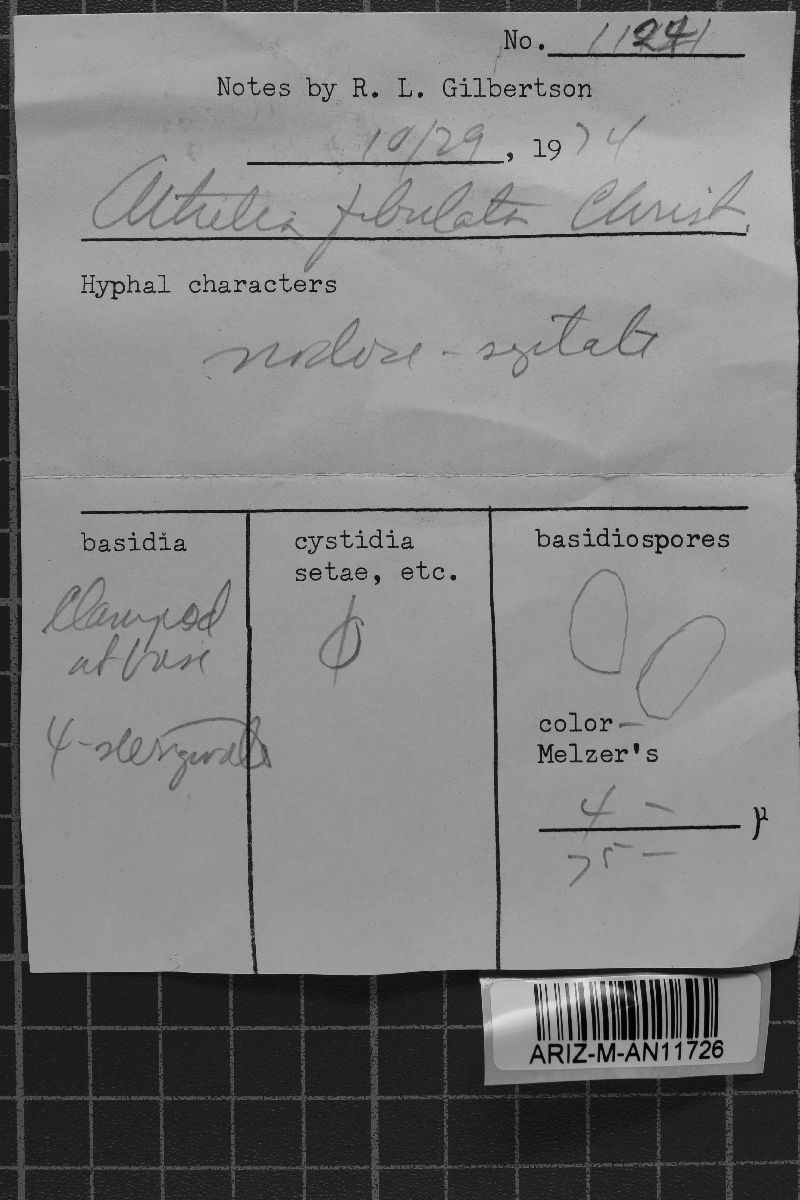 No.
Notes by R. L. Gilbertson
10/29, 1974
Athelia fibulata Christ.
Hyphal characters
nodose-septate
basidia
cystidia
setae, etc.
basidiospores
Clamped
at base
4-sterigmate
ϕ
color —
Melzer's
4 —
75 —
μ
ARIZ-M-AN11726